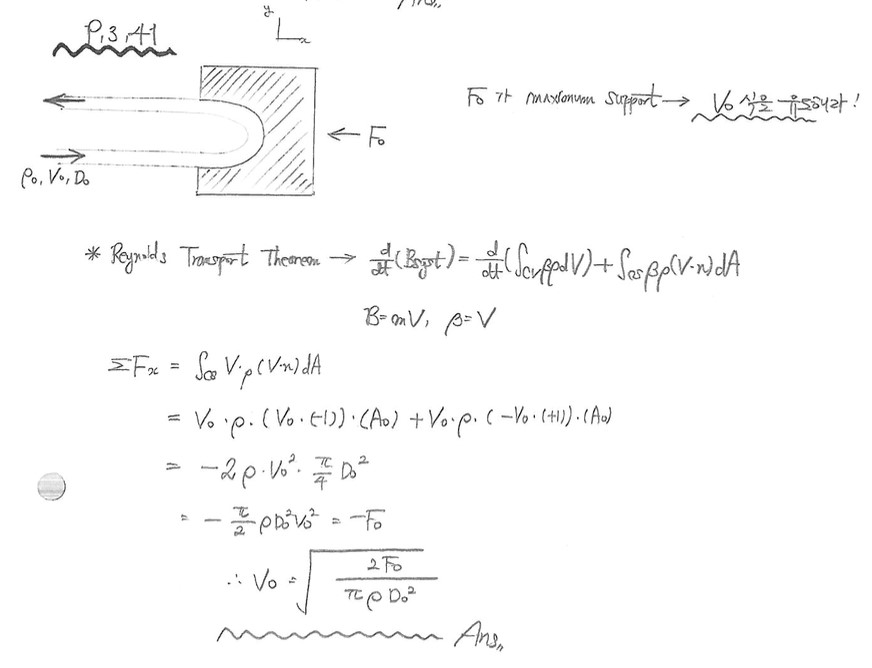 Ans,,
P,3,41
y
x
F₀ 가 maximum support → V₀ 식을 유도하라!
← F₀
ρ₀, V₀, D₀
* Reynolds Transport Theorem → d/dt(Bsyst) = d/dt(∫cv βρdV) + ∫cs βρ(V·n)dA
B=mV, β=V
ΣFx = ∫cs V·ρ(V·n)dA
= V₀·ρ·(V₀·(-1))·(A₀) + V₀·ρ·(-V₀·(+1))·(A₀)
= -2ρ·V₀²·π/4 D₀²
= -π/2 ρD₀²V₀² = -F₀
∴ V₀ = √(2F₀/πρD₀²)
Ans,,